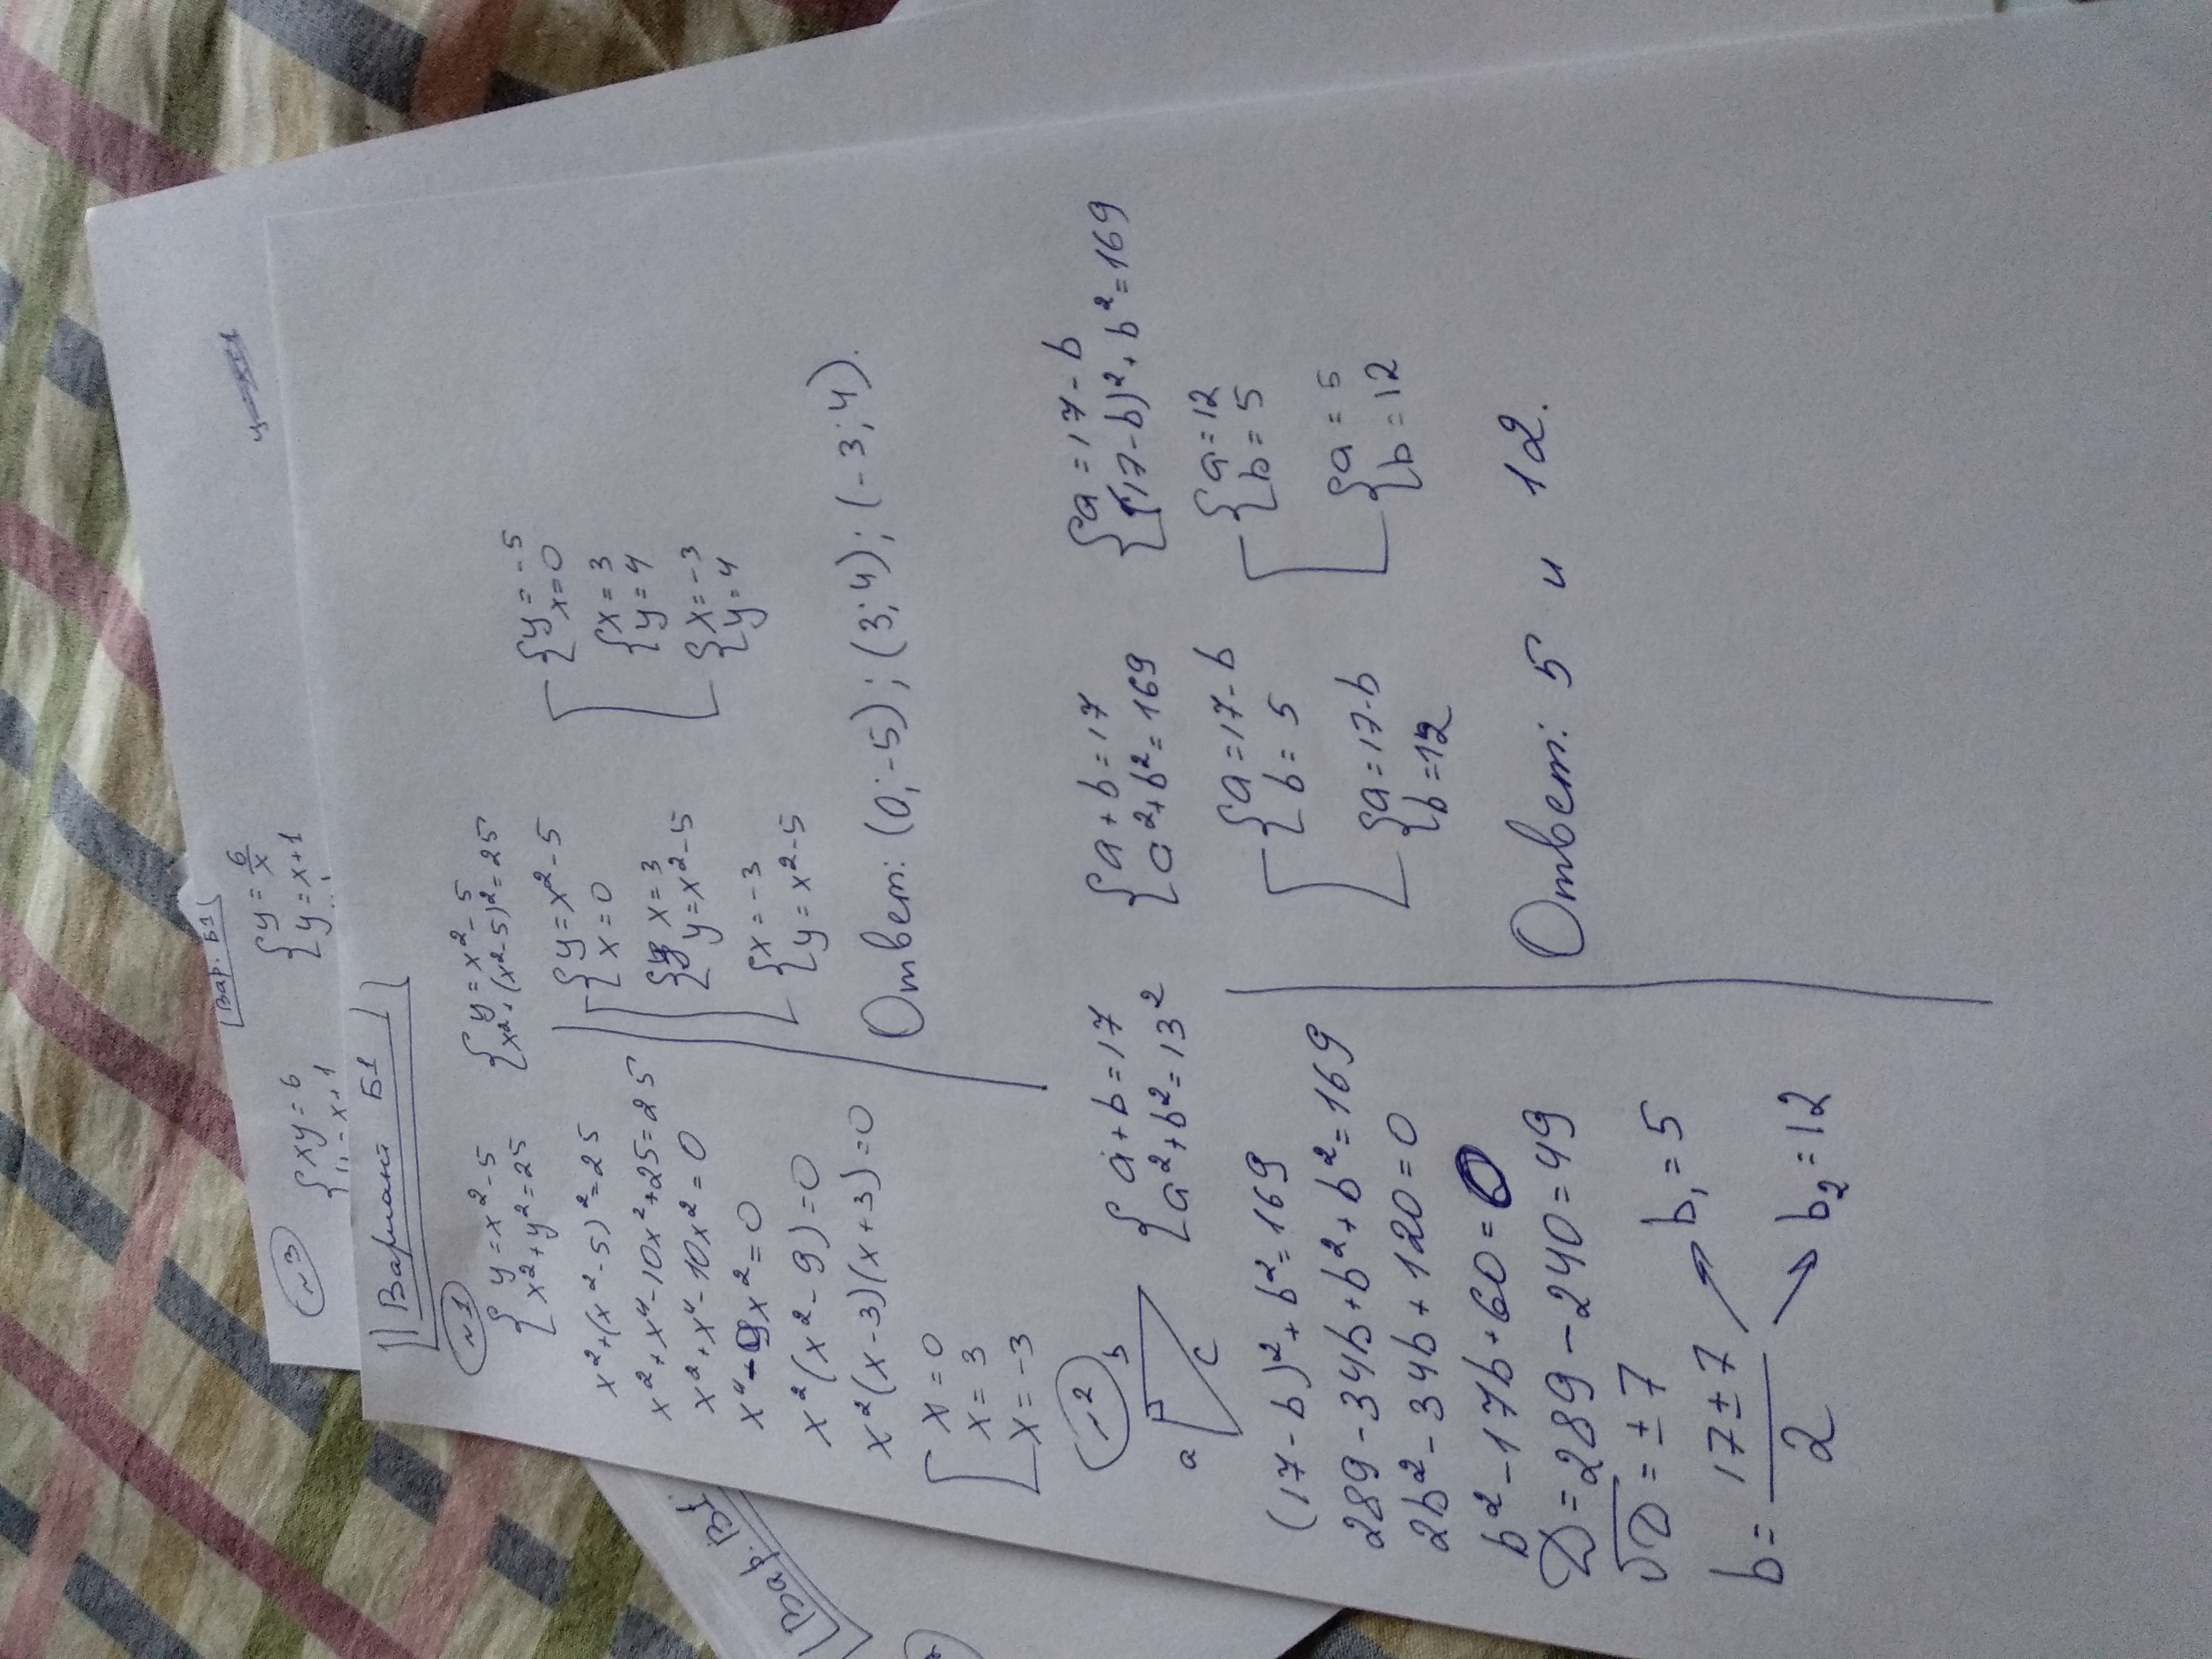 Вар. Б1
№3
{xy = 6
y = x+1
{y = 6/x
{y = x+1
Вариант Б1
№1
{y = x² - 5
x² + y² = 25
{y = x² - 5
x² + (x² - 5)² = 25
x² + (x² - 5)² = 25
x² + x⁴ - 10x² + 25 = 25
x² + x⁴ - 10x² = 0
x⁴ - 9x² = 0
x²(x² - 9) = 0
x²(x - 3)(x + 3) = 0
[x = 0
x = 3
x = -3
[{y = x² - 5
x = 0
{x = 3
y = x² - 5
{x = -3
y = x² - 5
[{y = -5
x = 0
{x = 3
y = 4
{x = -3
y = 4
Ответ: (0; -5); (3; 4); (-3; 4).
№2
a
b
c
{a + b = 17
a² + b² = 13²
{a + b = 17
a² + b² = 169
{a = 17 - b
(17 - b)² + b² = 169
(17 - b)² + b² = 169
289 - 34b + b² + b² = 169
2b² - 34b + 120 = 0
b² - 17b + 60 = 0
D = 289 - 240 = 49
√D = ± 7
b = (17 ± 7)/2
b₁ = 5
b₂ = 12
[{a = 17 - b
b = 5
{a = 17 - b
b = 12
[{a = 12
b = 5
{a = 5
b = 12
Ответ: 5 и 12.
Вар. Б1